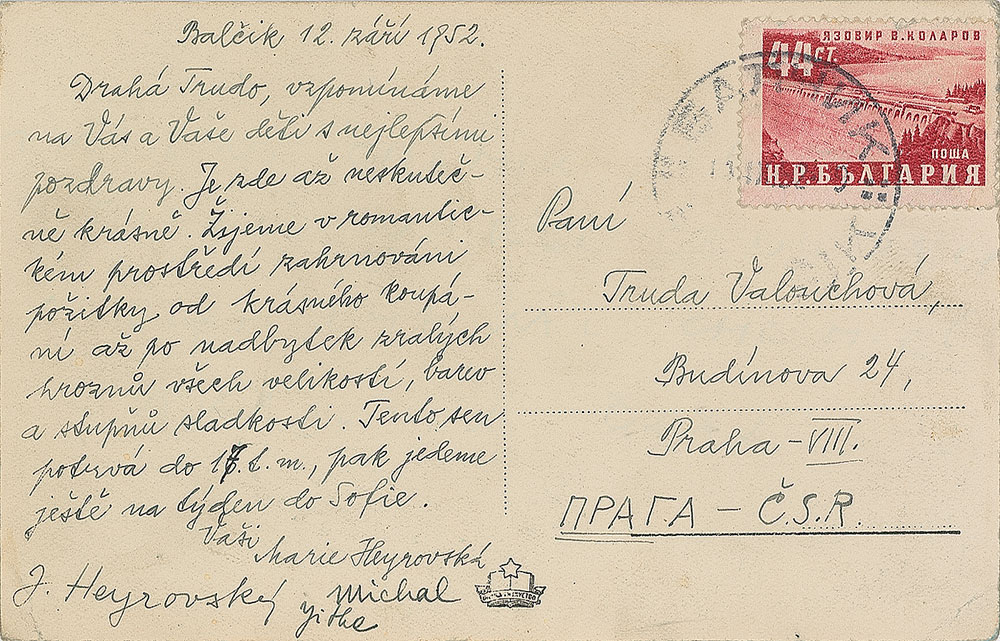 Balčik 12. září 1952.
Drahá Trudo, vzpomínáme
na Vás a Vaše děti s nejlepšími
pozdravy. Je zde až neskuteč-
ně krásně. Žijeme v romantic-
kém prostředí zahrnováni
požitky od krásného koupá-
ní až po nadbytek zralých
hroznů všech velikostí, barev
a stupňů sladkosti. Tento sen
potrvá do 17. t. m., pak jedeme
ještě na týden do Sofie.
Vaši
Marie Heyrovská
J. Heyrovský Michal
Jitka
44 СТ.
ЯЗОВИР В. КОЛАРОВ
ПОЩА
Н.Р. БЪЛГАРИЯ
Paní
Truda Valouchová,
Budínova 24,
Praha - VIII.
ПРАГА - Č.S.R.